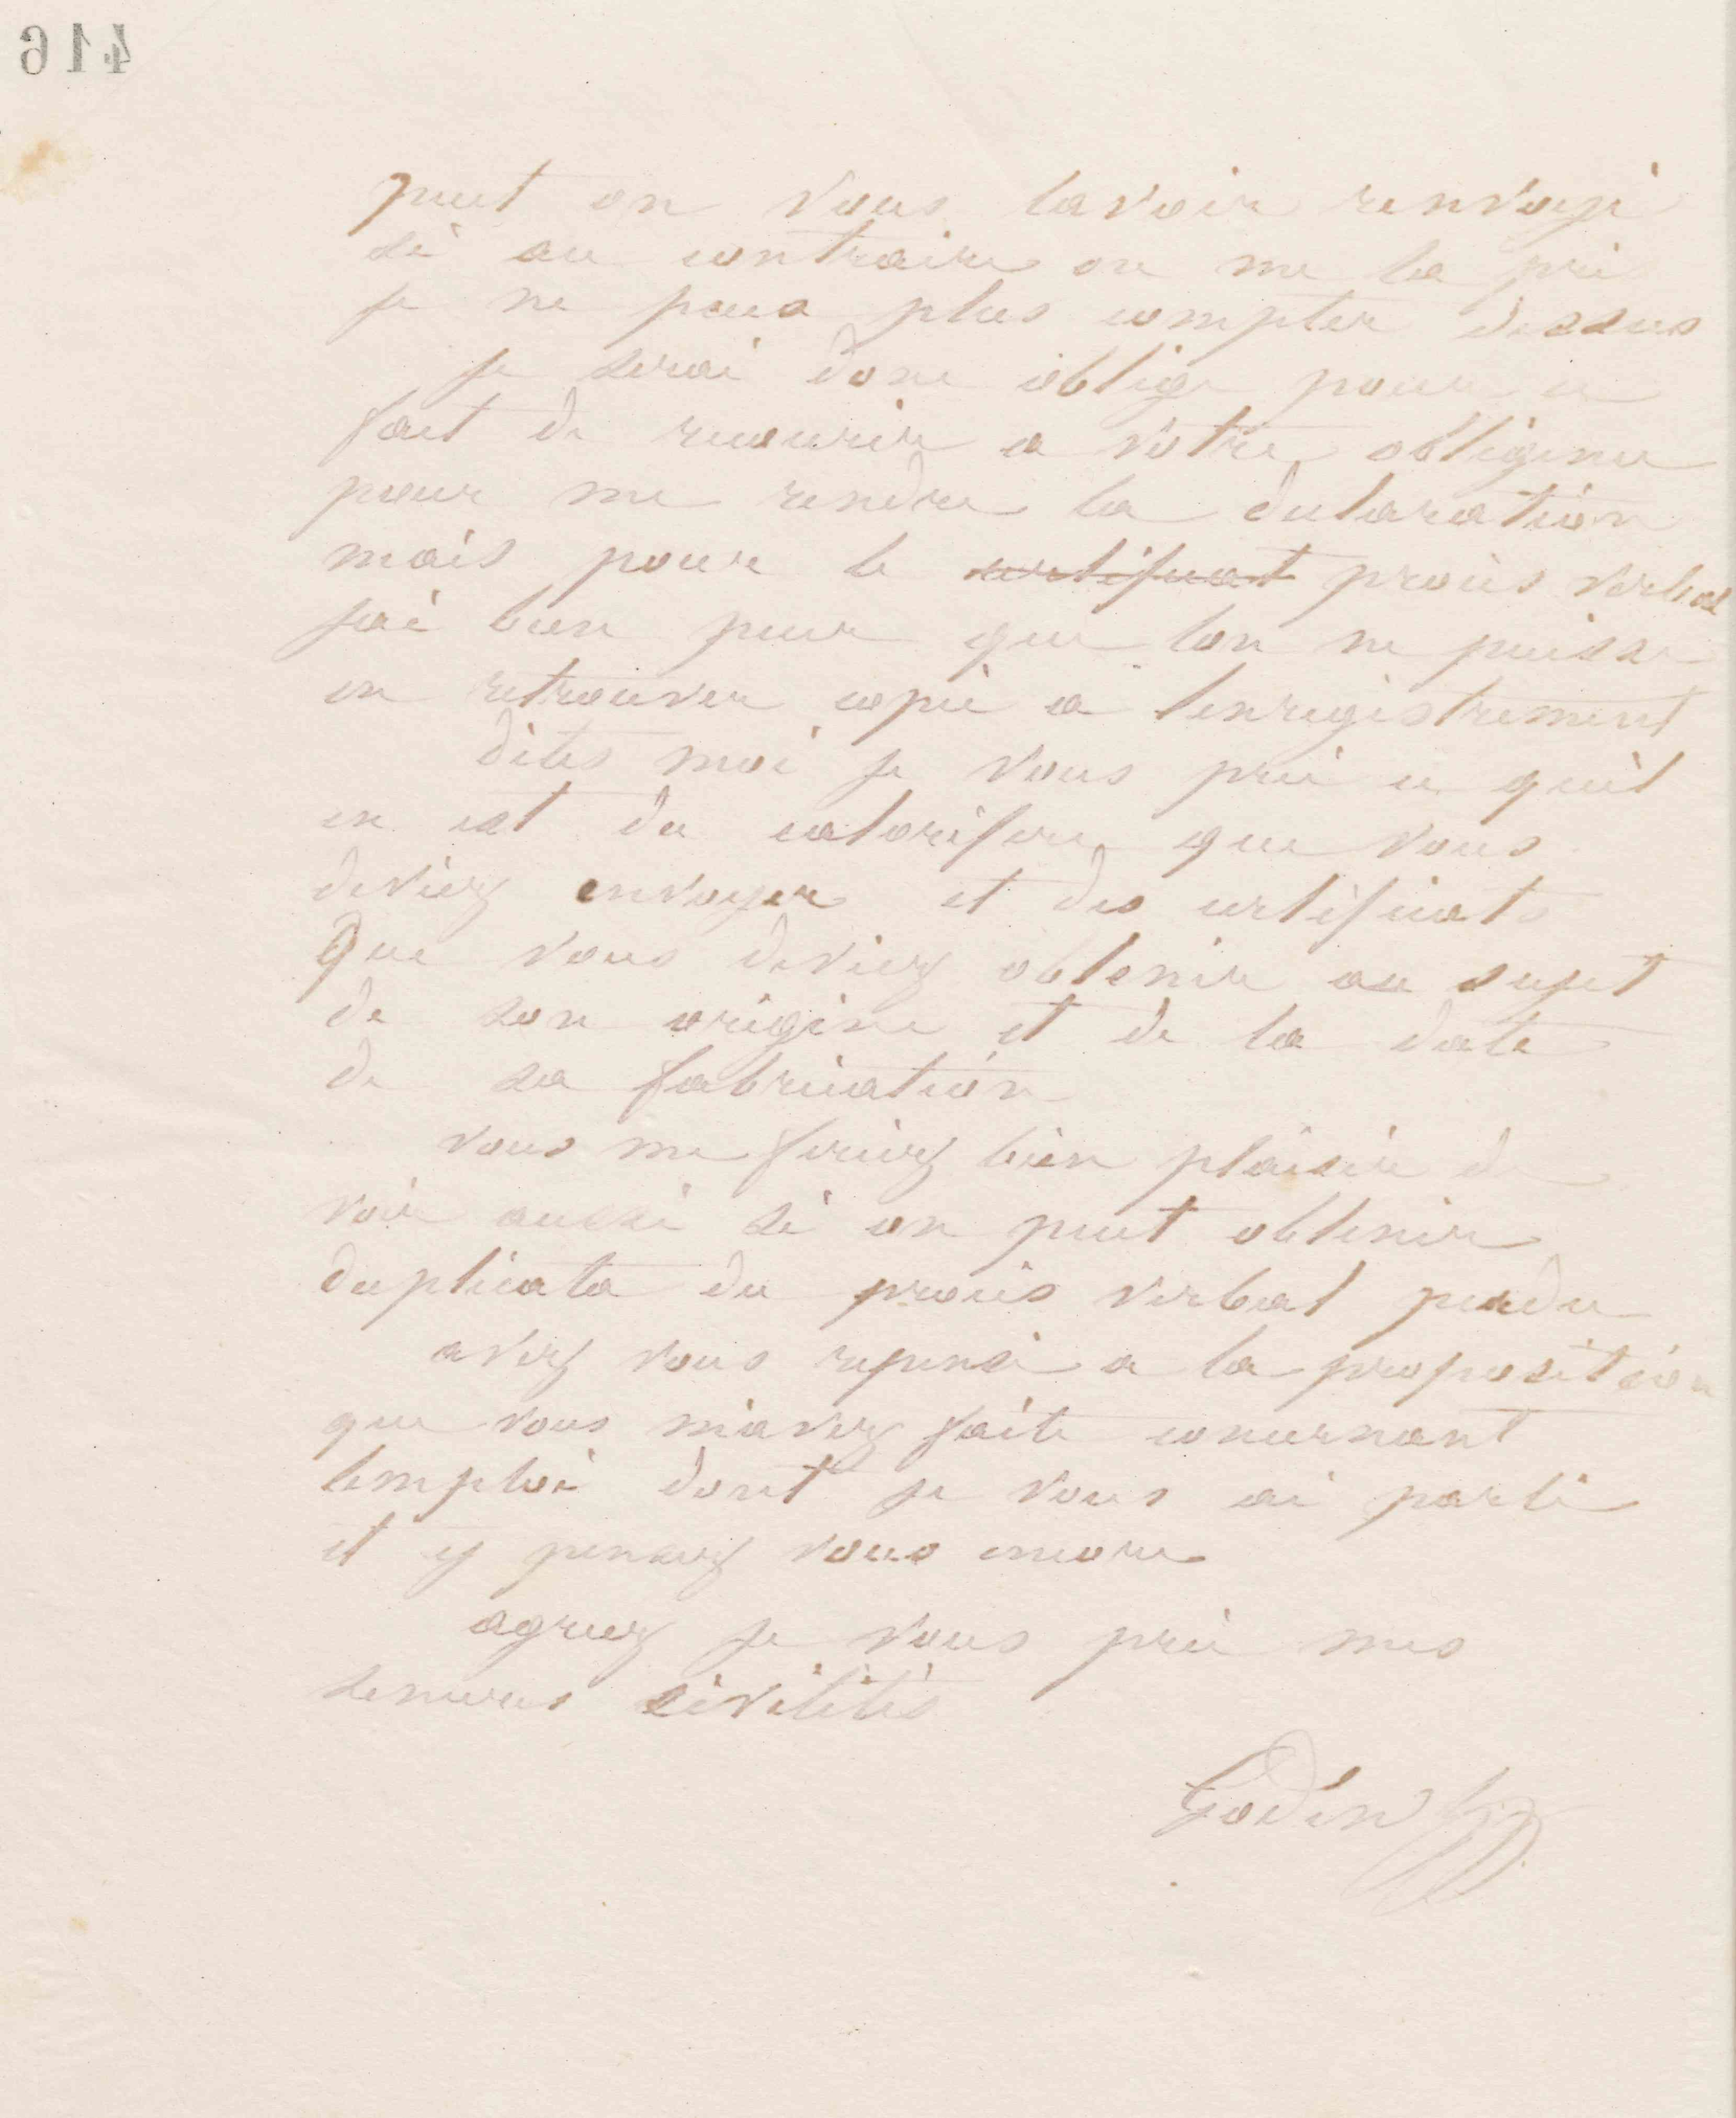 416
peut on vous lavoir renvoyé
si au contraire on me la pris
je ne peux plus compter dessus
je serai donc obligé pour ce
fait de recourir a votre obligence
pour me rendre la declaration
mais pour le certificat procès verbal
jai bien peur que lon ne puisse
en retrouver copie a lenregistrement
dites moi je vous prie ce quil
en est du calorifere que vous
deviez envoyer et des certificats
Que vous deviez obtenir au sujet
de son origine et de la date
de sa fabrication
vous me feriez bien plaisir de
voir aussi si on peut obtenir
duplicata du procès verbal perdu
avez vous repensé a la proposition
que vous m'avez faite concernant
lemploi dont je vous ai parlé
et y pensez vous encore
agreez je vous prie mes
senceres civilités
Godin